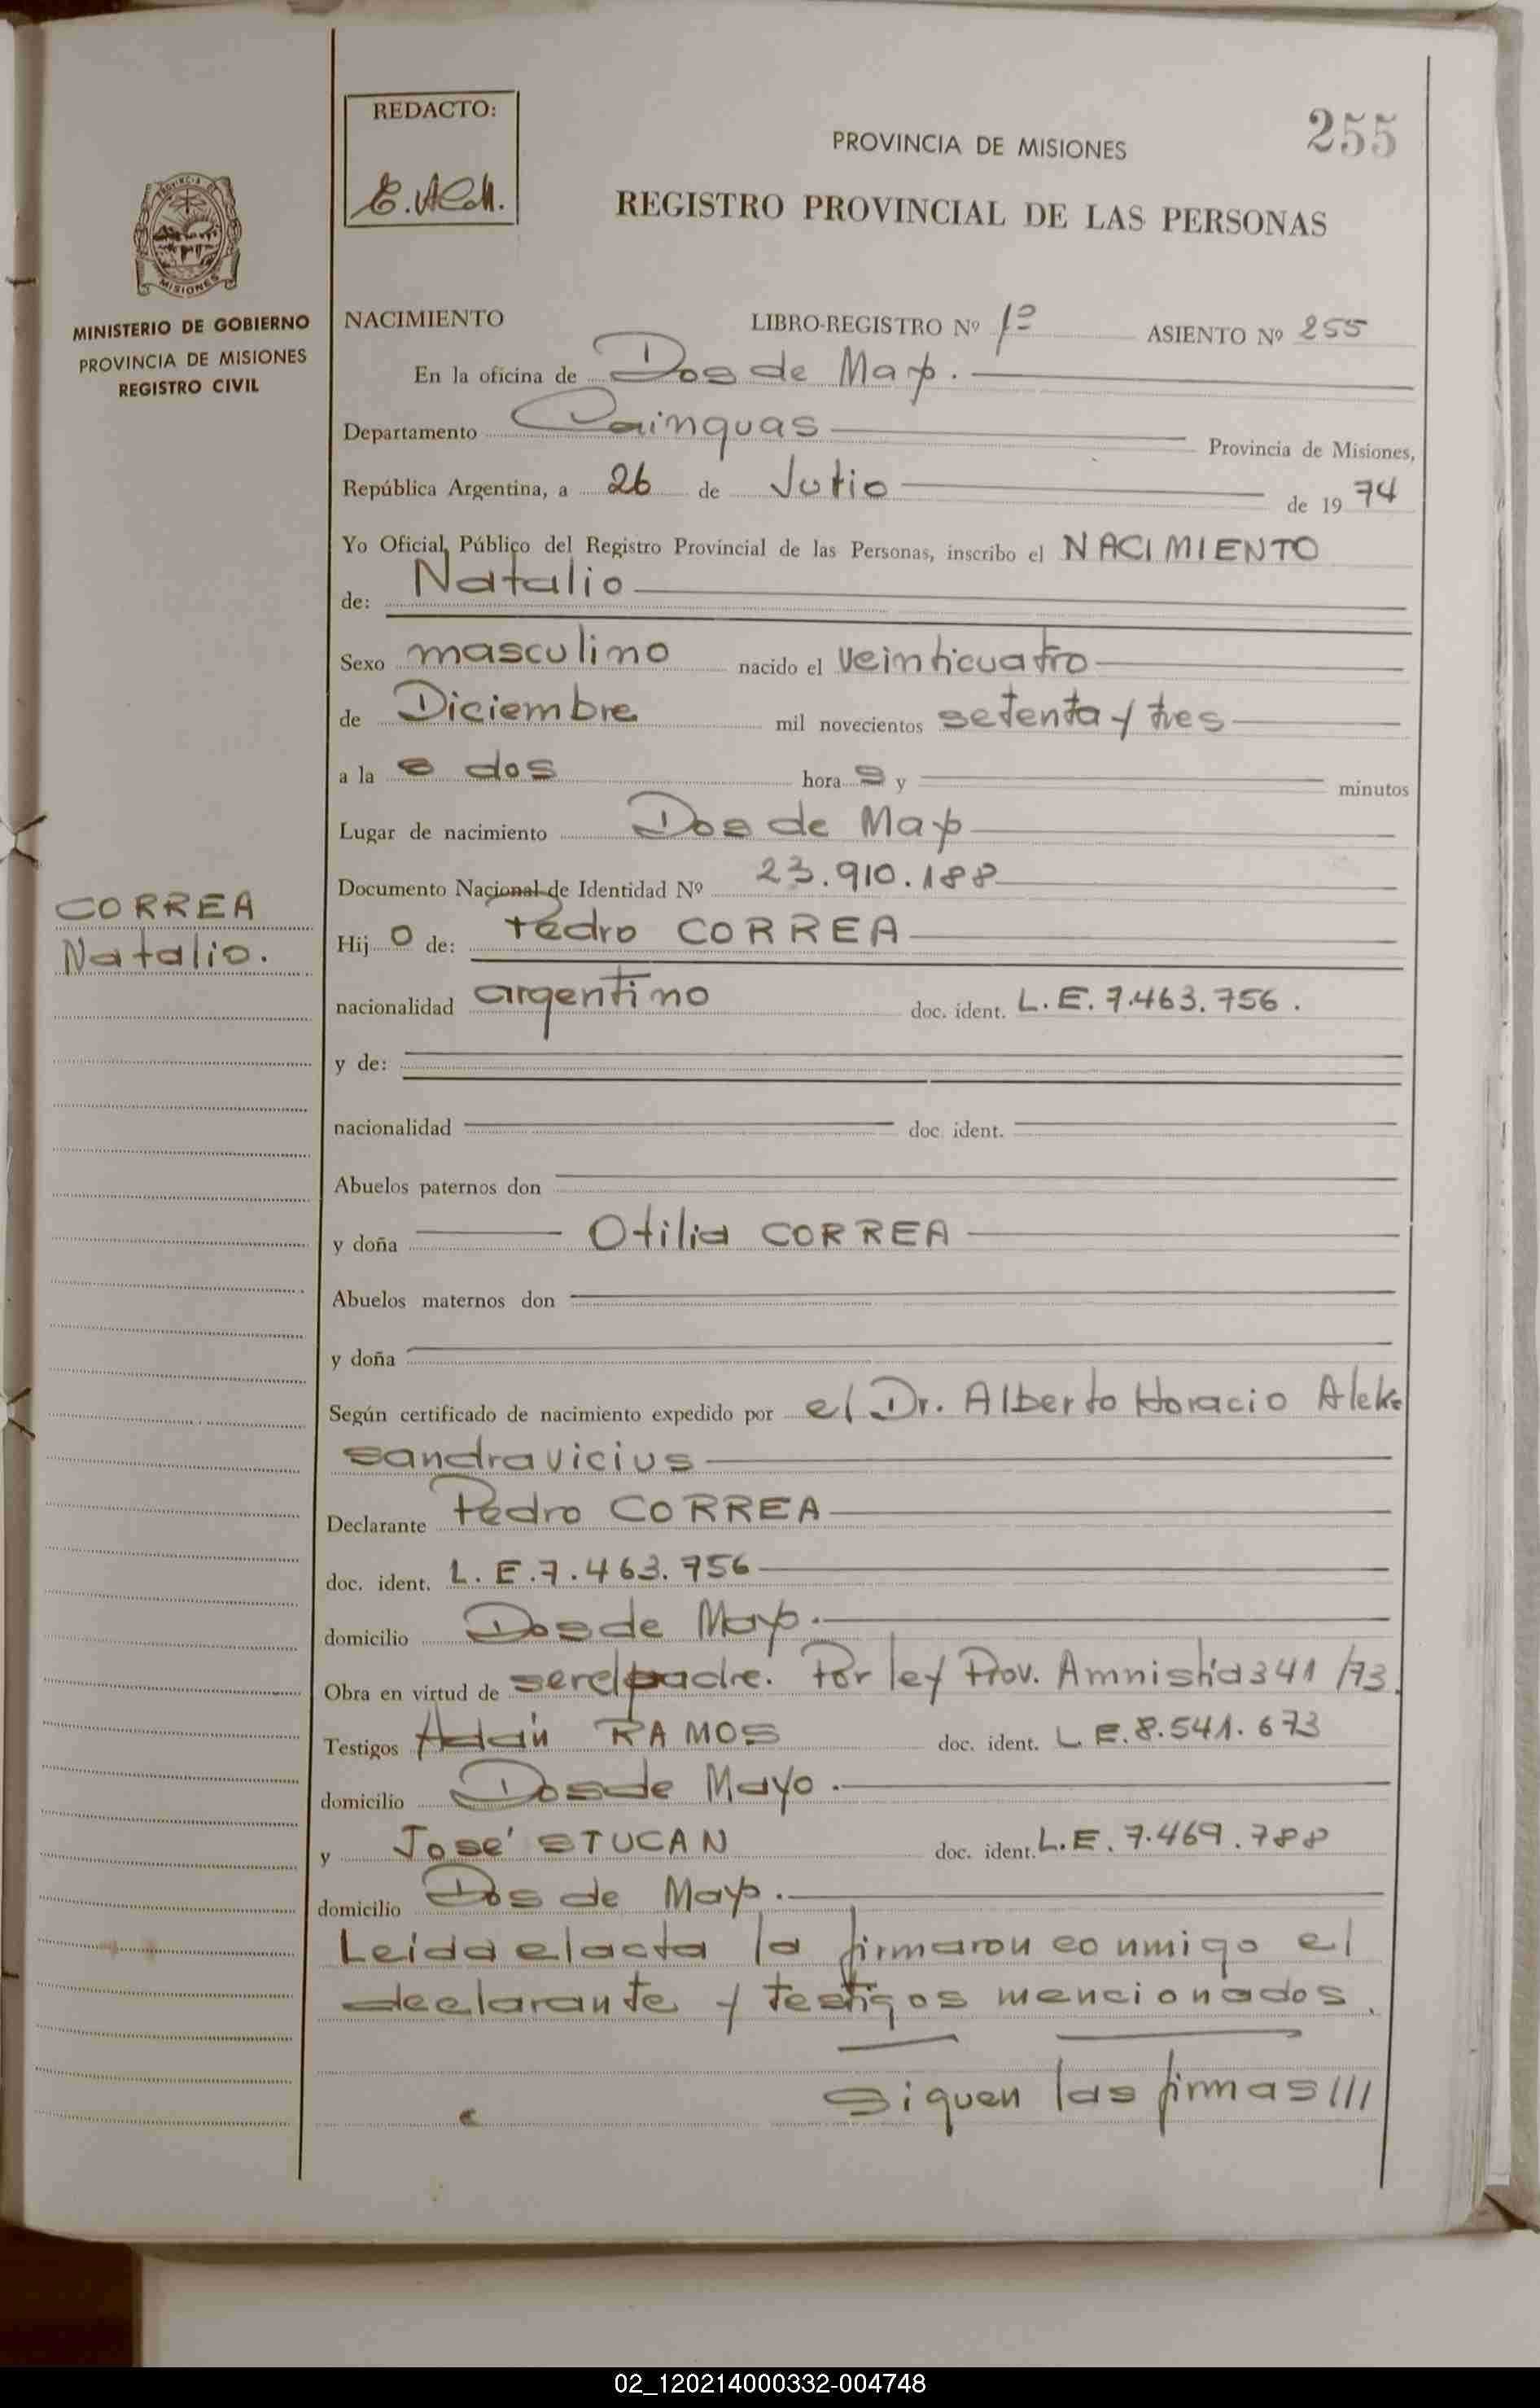 REDACTO:
E.Ach.
255
PROVINCIA DE MISIONES
REGISTRO PROVINCIAL DE LAS PERSONAS
PROVINCIA DE
MISIONES
MINISTERIO DE GOBIERNO
PROVINCIA DE MISIONES
REGISTRO CIVIL
NACIMIENTO LIBRO-REGISTRO Nº 1º ASIENTO Nº 255
En la oficina de Dos de Mayo.
Departamento Cainguas Provincia de Misiones,
República Argentina, a 26 de Julio de 1974
Yo Oficial Público del Registro Provincial de las Personas, inscribo el NACIMIENTO
de: Natalio
Sexo masculino nacido el veinticuatro
de Diciembre mil novecientos setenta y tres
a la s dos hora s y minutos
Lugar de nacimiento Dos de Mayo
Documento Nacional de Identidad Nº 23.910.188
CORREA
Natalio.
Hij o de: Pedro CORREA
nacionalidad argentino doc. ident. L.E. 7.463.756.
y de:
nacionalidad doc. ident.
Abuelos paternos don
y doña Otilia CORREA
Abuelos maternos don
y doña
Según certificado de nacimiento expedido por el Dr. Alberto Horacio Alek
sandravicius
Declarante Pedro CORREA
doc. ident. L.E.7.463.756
domicilio Dos de Mayo.
Obra en virtud de ser el padre. Por ley Prov. Amnistia 341/73.
Testigos Adán RAMOS doc. ident. L.E.8.541.673
domicilio Dos de Mayo.
y José STUCAN doc. ident. L.E. 7.469.788
domicilio Dos de Mayo.
Leida el acta la firmaron conmigo el
declarante y testigos mencionados.
Siguen las firmas///
02_120214000332-004748